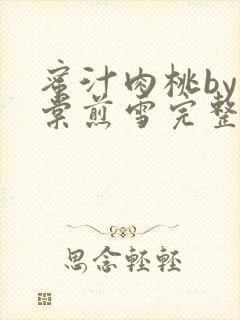 蜜汁肉桃by
棠煎雪完整
思念轻轻